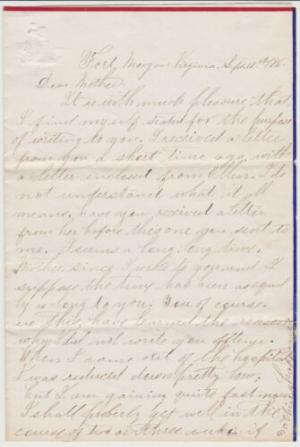 Fort Morgan Virginia Sept. 11th
Dear Mother
It is with much pleasure that
I find myself seated for the purpose
of writing to you. I received a letter
from you a short time ago with
a letter inclosed from I do
not understand what it all
means, have you received a letter
from her before this one you sent to
me. It seems a long long time
Mother since I wrote to you and I
suppose the time has been
long to you. You of course
ere this have learned the reason
why I did not write you oftener.
When I came out of the hospital
I was reduced down pretty low,
but I am gaining quite fast now
I shall get well in the
course of two or three weeks if